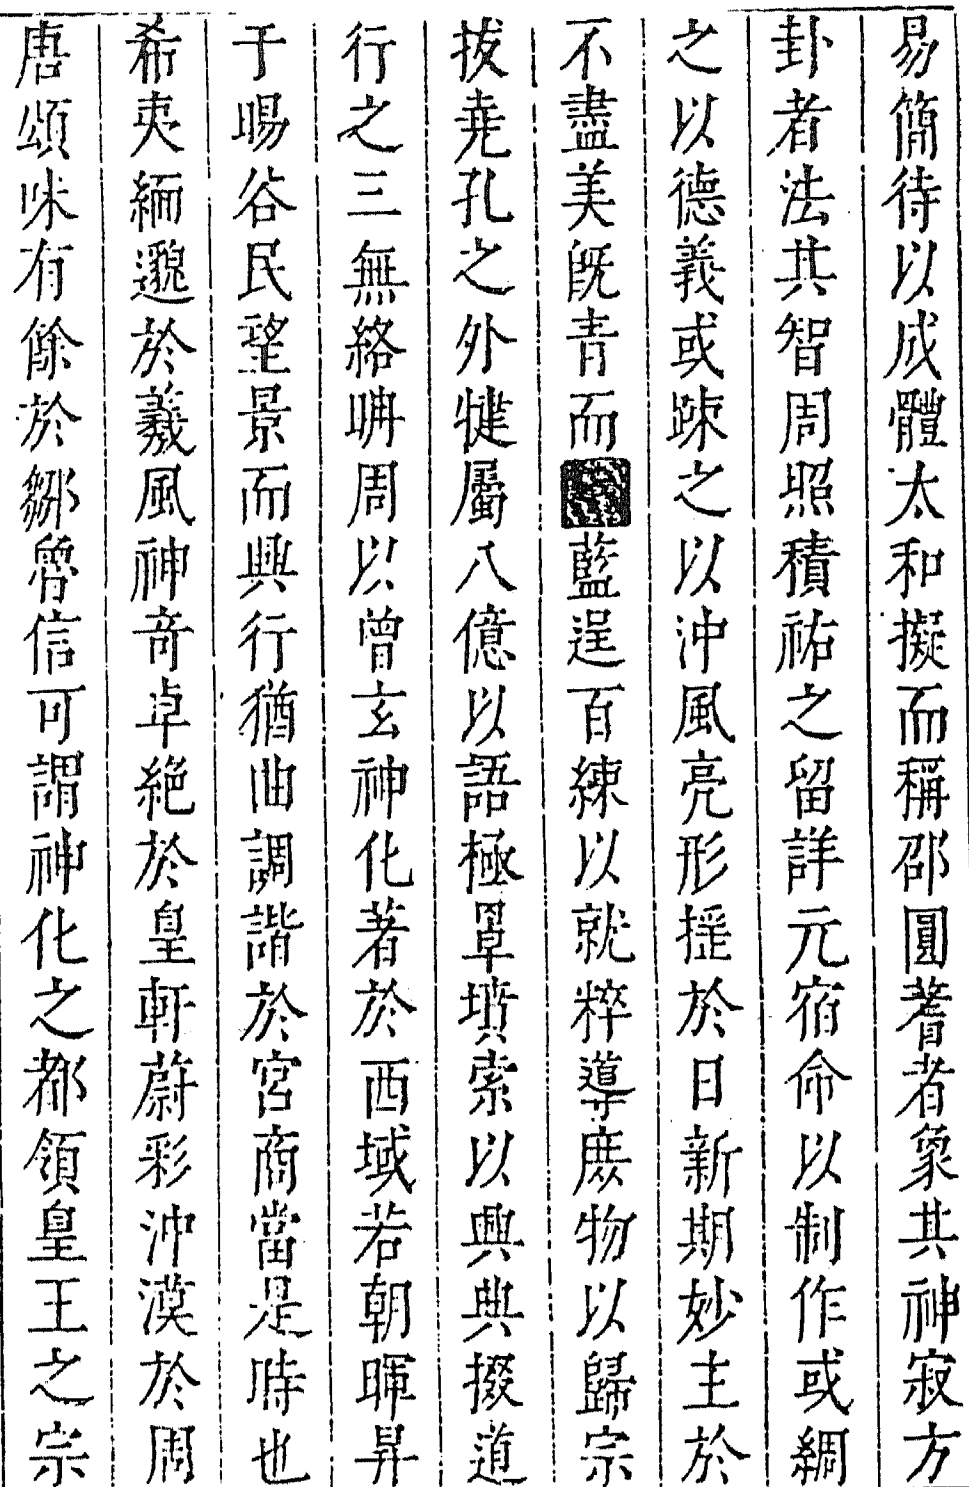 易簡待以成體太和擬而稱邵圓蓍者象其神寂方
卦者法其智周照積祐之留詳元宿命以制作或綢
之以德義或踈之以沖風亮形揺於日新期妙主於
不盡美旣青而藍逞百練以就粹導庶物以歸宗
拔堯孔之外犍屬八億以語極罩墳索以興典掇道
行之三無絡𣆶周以曾玄神化著於西域若朝暉昇
于暘谷民望景而興行猶曲調諧於宮商當是時也
希夷緬邈於羲風神奇卓絕於皇軒蔚彩沖漠於周
唐頌味有餘於鄒魯信可謂神化之都領皇王之宗